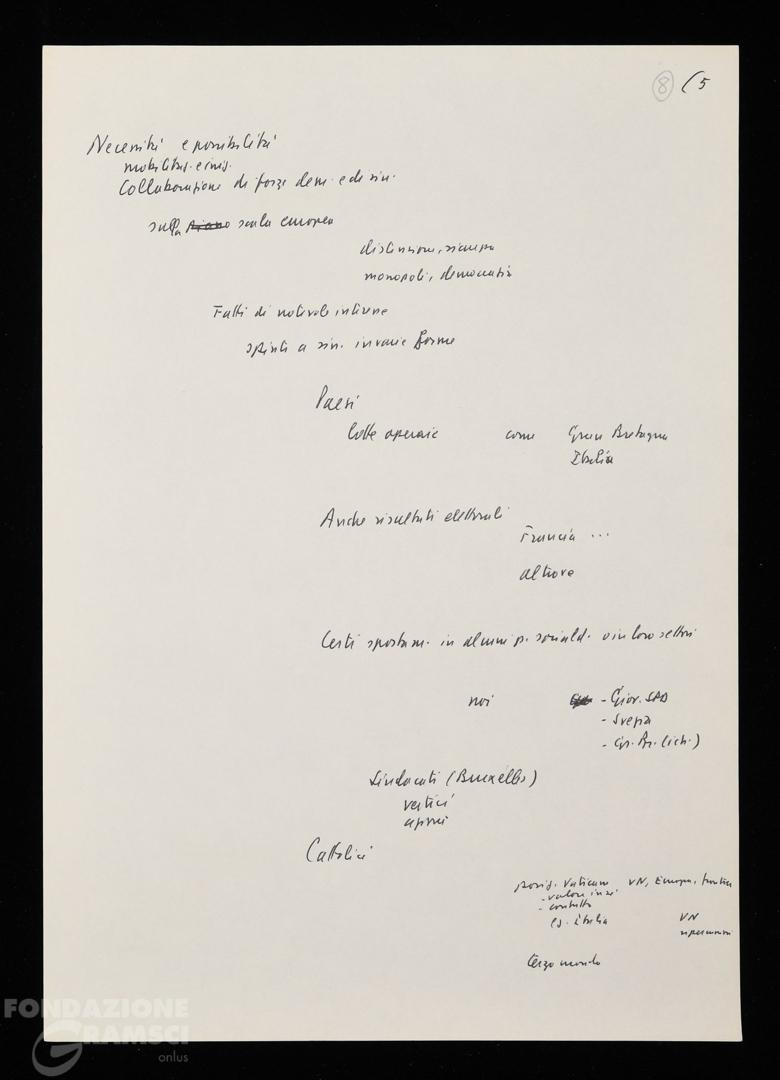 8 (5
Necessità e possibilità
mobilitaz. e iniz.
Collaborazione di forze dem. e di sin.
sulla piano scala europea
distensione, sicurezza
monopoli, democrazia
Fatti di notevole interesse
spinte a sin. in varie forme
Paesi
lotte operaie come Gran Bretagna
Italia
Anche risultati elettorali
Francia ...
altrove
Certi spostam. in alcuni p. sociald. o in loro settori
noi - Giov. SPD
- Svezia
- Gr. Br. (ich.)
Sindacati (Bruxelles)
vertici
Cattolici
posiz. Vaticano VN, Europa,
- valore
- contatto
es. Italia VN
terzo mondo
FONDAZIONE
GRAMSCI
onlus